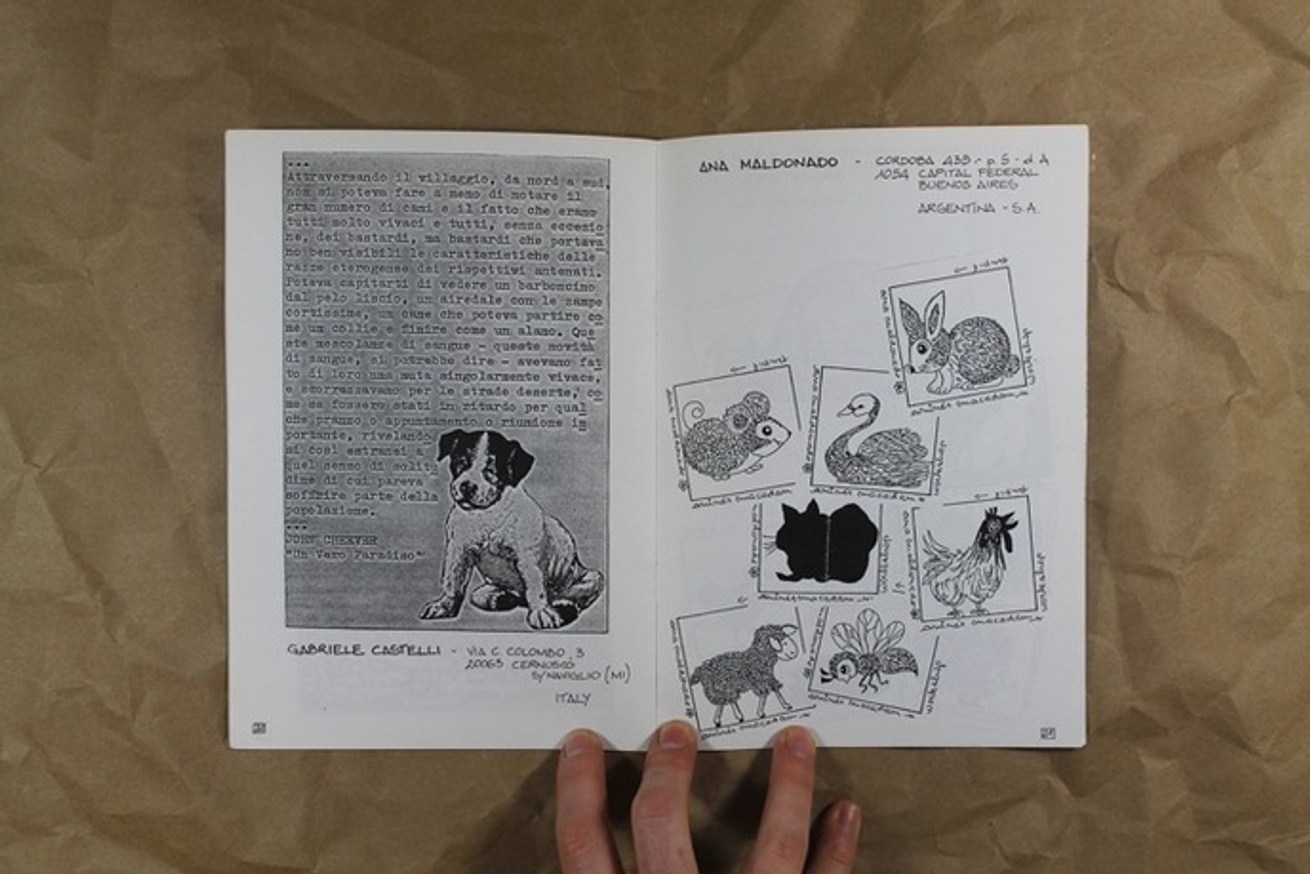 ...
Attraversando il villaggio, da nord a sud,
non si poteva fare a meno di notare il
gran numero di cani e il fatto che erano
tutti molto vivaci e tutti, senza eccezio
ne, dei bastardi, ma bastardi che portava
no ben visibili le caratteristiche delle
razze eterogenee dei rispettivi antenati.
Poteva capitarti di vedere un barboncino
dal pelo liscio, un airedale con le zampe
cortissime, un cane che poteva partire co
me un collie e finire come un alano. Que
ste mescolanze di sangue - queste novità
di sangue, si potrebbe dire - avevano fat
to di loro una muta singolarmente vivace,
e scorrazzavano per le strade deserte, co
me se fossero stati in ritardo per qual
che pranzo o appuntamento o riunione im
portante, rivelando
si così estranei a
quel senso di solitu
dine di cui pareva
soffrire parte della
popolazione.
...
JOHN CHEEVER
"Un Vero Paradiso"
GABRIELE CASTELLI - VIA C. COLOMBO, 3
20063 CERNUSCO
S/NAVIGLIO (MI)
ITALY
ANA MALDONADO - CORDOBA 433 - p. 5 - d. A
1054 CAPITAL FEDERAL
BUENOS AIRES
ARGENTINA - S.A.